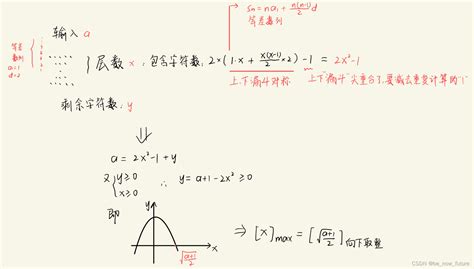 Sn = na₁ + n(n-1)/2 d
等差数列
输入 a
等差
数列
a=1
d=2
层数 x, 包含字符数, 2×(1·x + x(x-1)/2 ×2) -1 = 2x²-1
上.下"漏斗"对称
上下"漏斗"尖重合了,要减去重复计算的"1"
剩余字符数: y
⇓
a = 2x²-1+y
又 { y≥0
x≥0
∴ y = a+1-2x² ≥0
即
y
x
√(a+1)/2
⇒ [x]max = [√(a+1)/2] 向下取整
CSDN @be_now_future